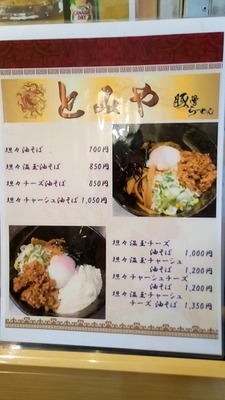 CANADA DRY
とみや
豚骨らーめん
坦々油そば 700円
坦々温玉油そば 850円
坦々チーズ油そば 850円
坦々チャーシュ油そば 1,050円
坦々温玉チーズ
油そば 1,000円
坦々温玉チャーシュ
油そば 1,200円
坦々チャーシュチーズ
油そば 1,200円
坦々温玉チャーシュ
チーズ 油そば 1,350円